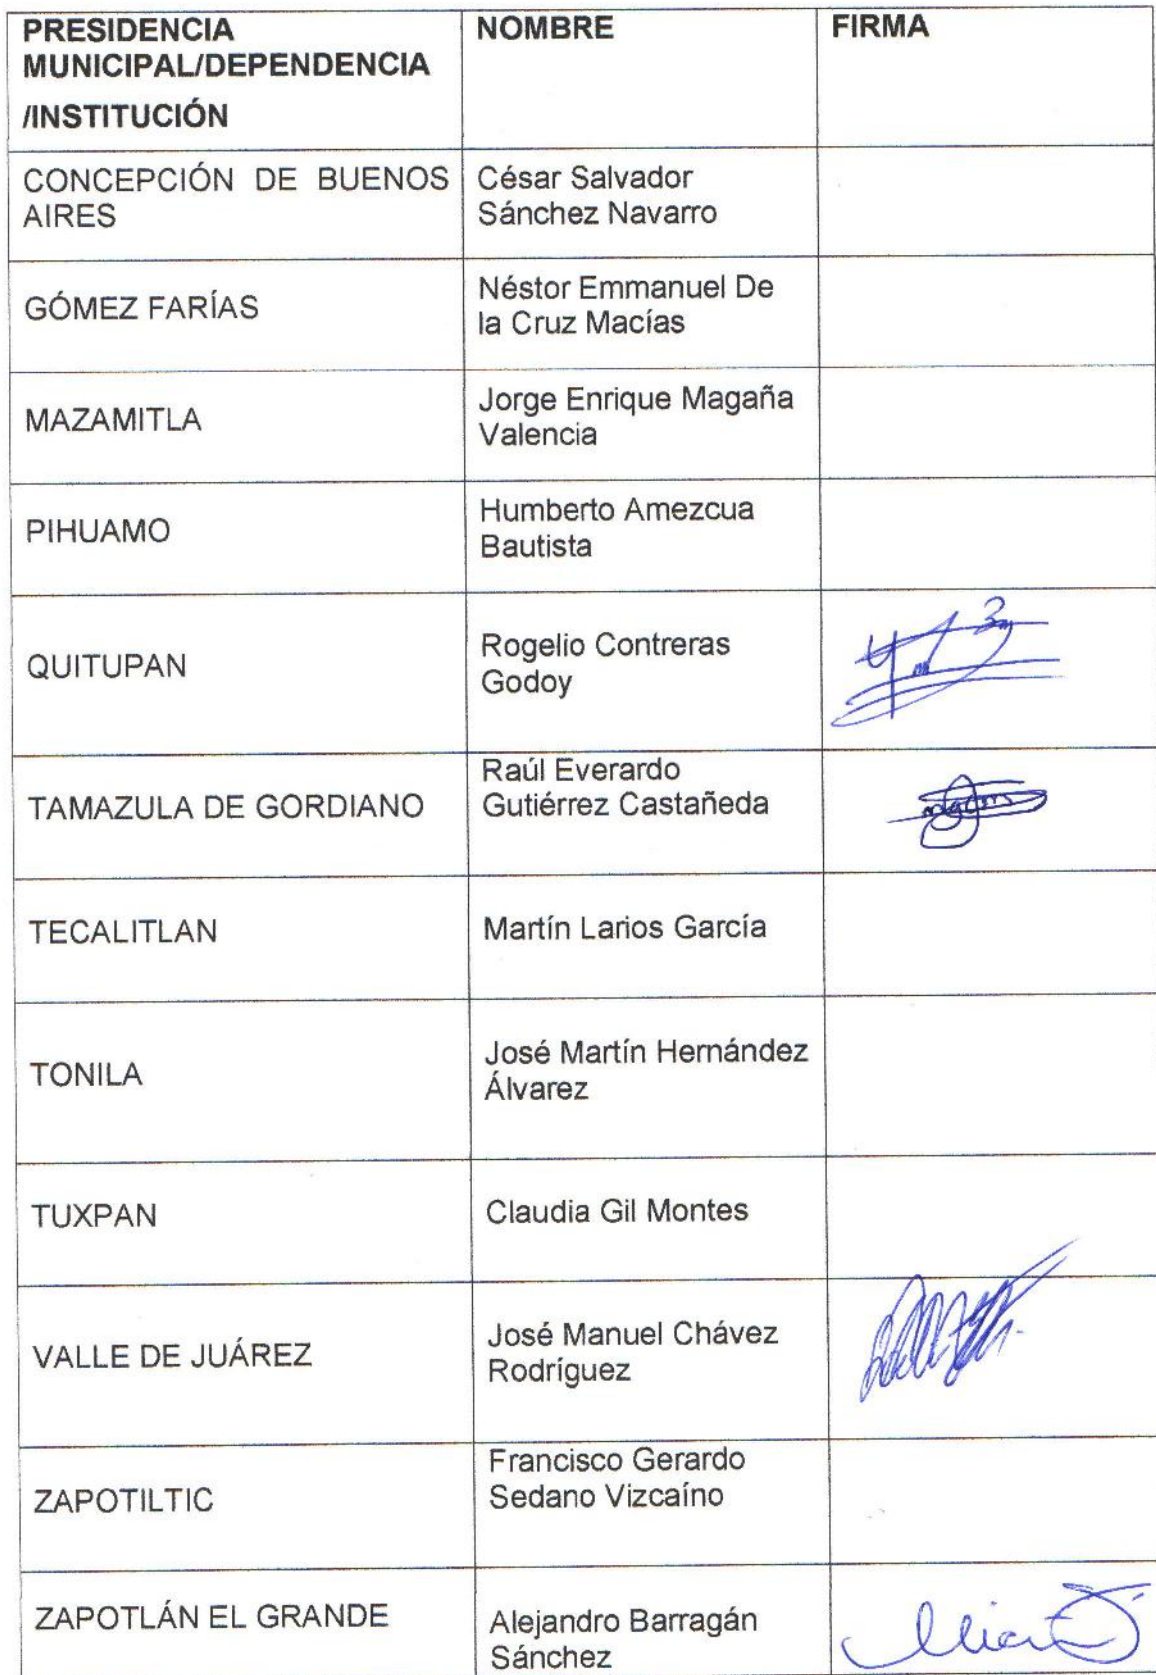 PRESIDENCIA MUNICIPAL/DEPENDENCIA /INSTITUCIÓN NOMBRE FIRMA
CONCEPCIÓN DE BUENOS AIRES César Salvador Sánchez Navarro
GÓMEZ FARÍAS Néstor Emmanuel De la Cruz Macías
MAZAMITLA Jorge Enrique Magaña Valencia
PIHUAMO Humberto Amezcua Bautista
QUITUPAN Rogelio Contreras Godoy
TAMAZULA DE GORDIANO Raúl Everardo Gutiérrez Castañeda
TECALITLAN Martín Larios García
TONILA José Martín Hernández Álvarez
TUXPAN Claudia Gil Montes
VALLE DE JUÁREZ José Manuel Chávez Rodríguez
ZAPOTILTIC Francisco Gerardo Sedano Vizcaíno
ZAPOTLÁN EL GRANDE Alejandro Barragán Sánchez